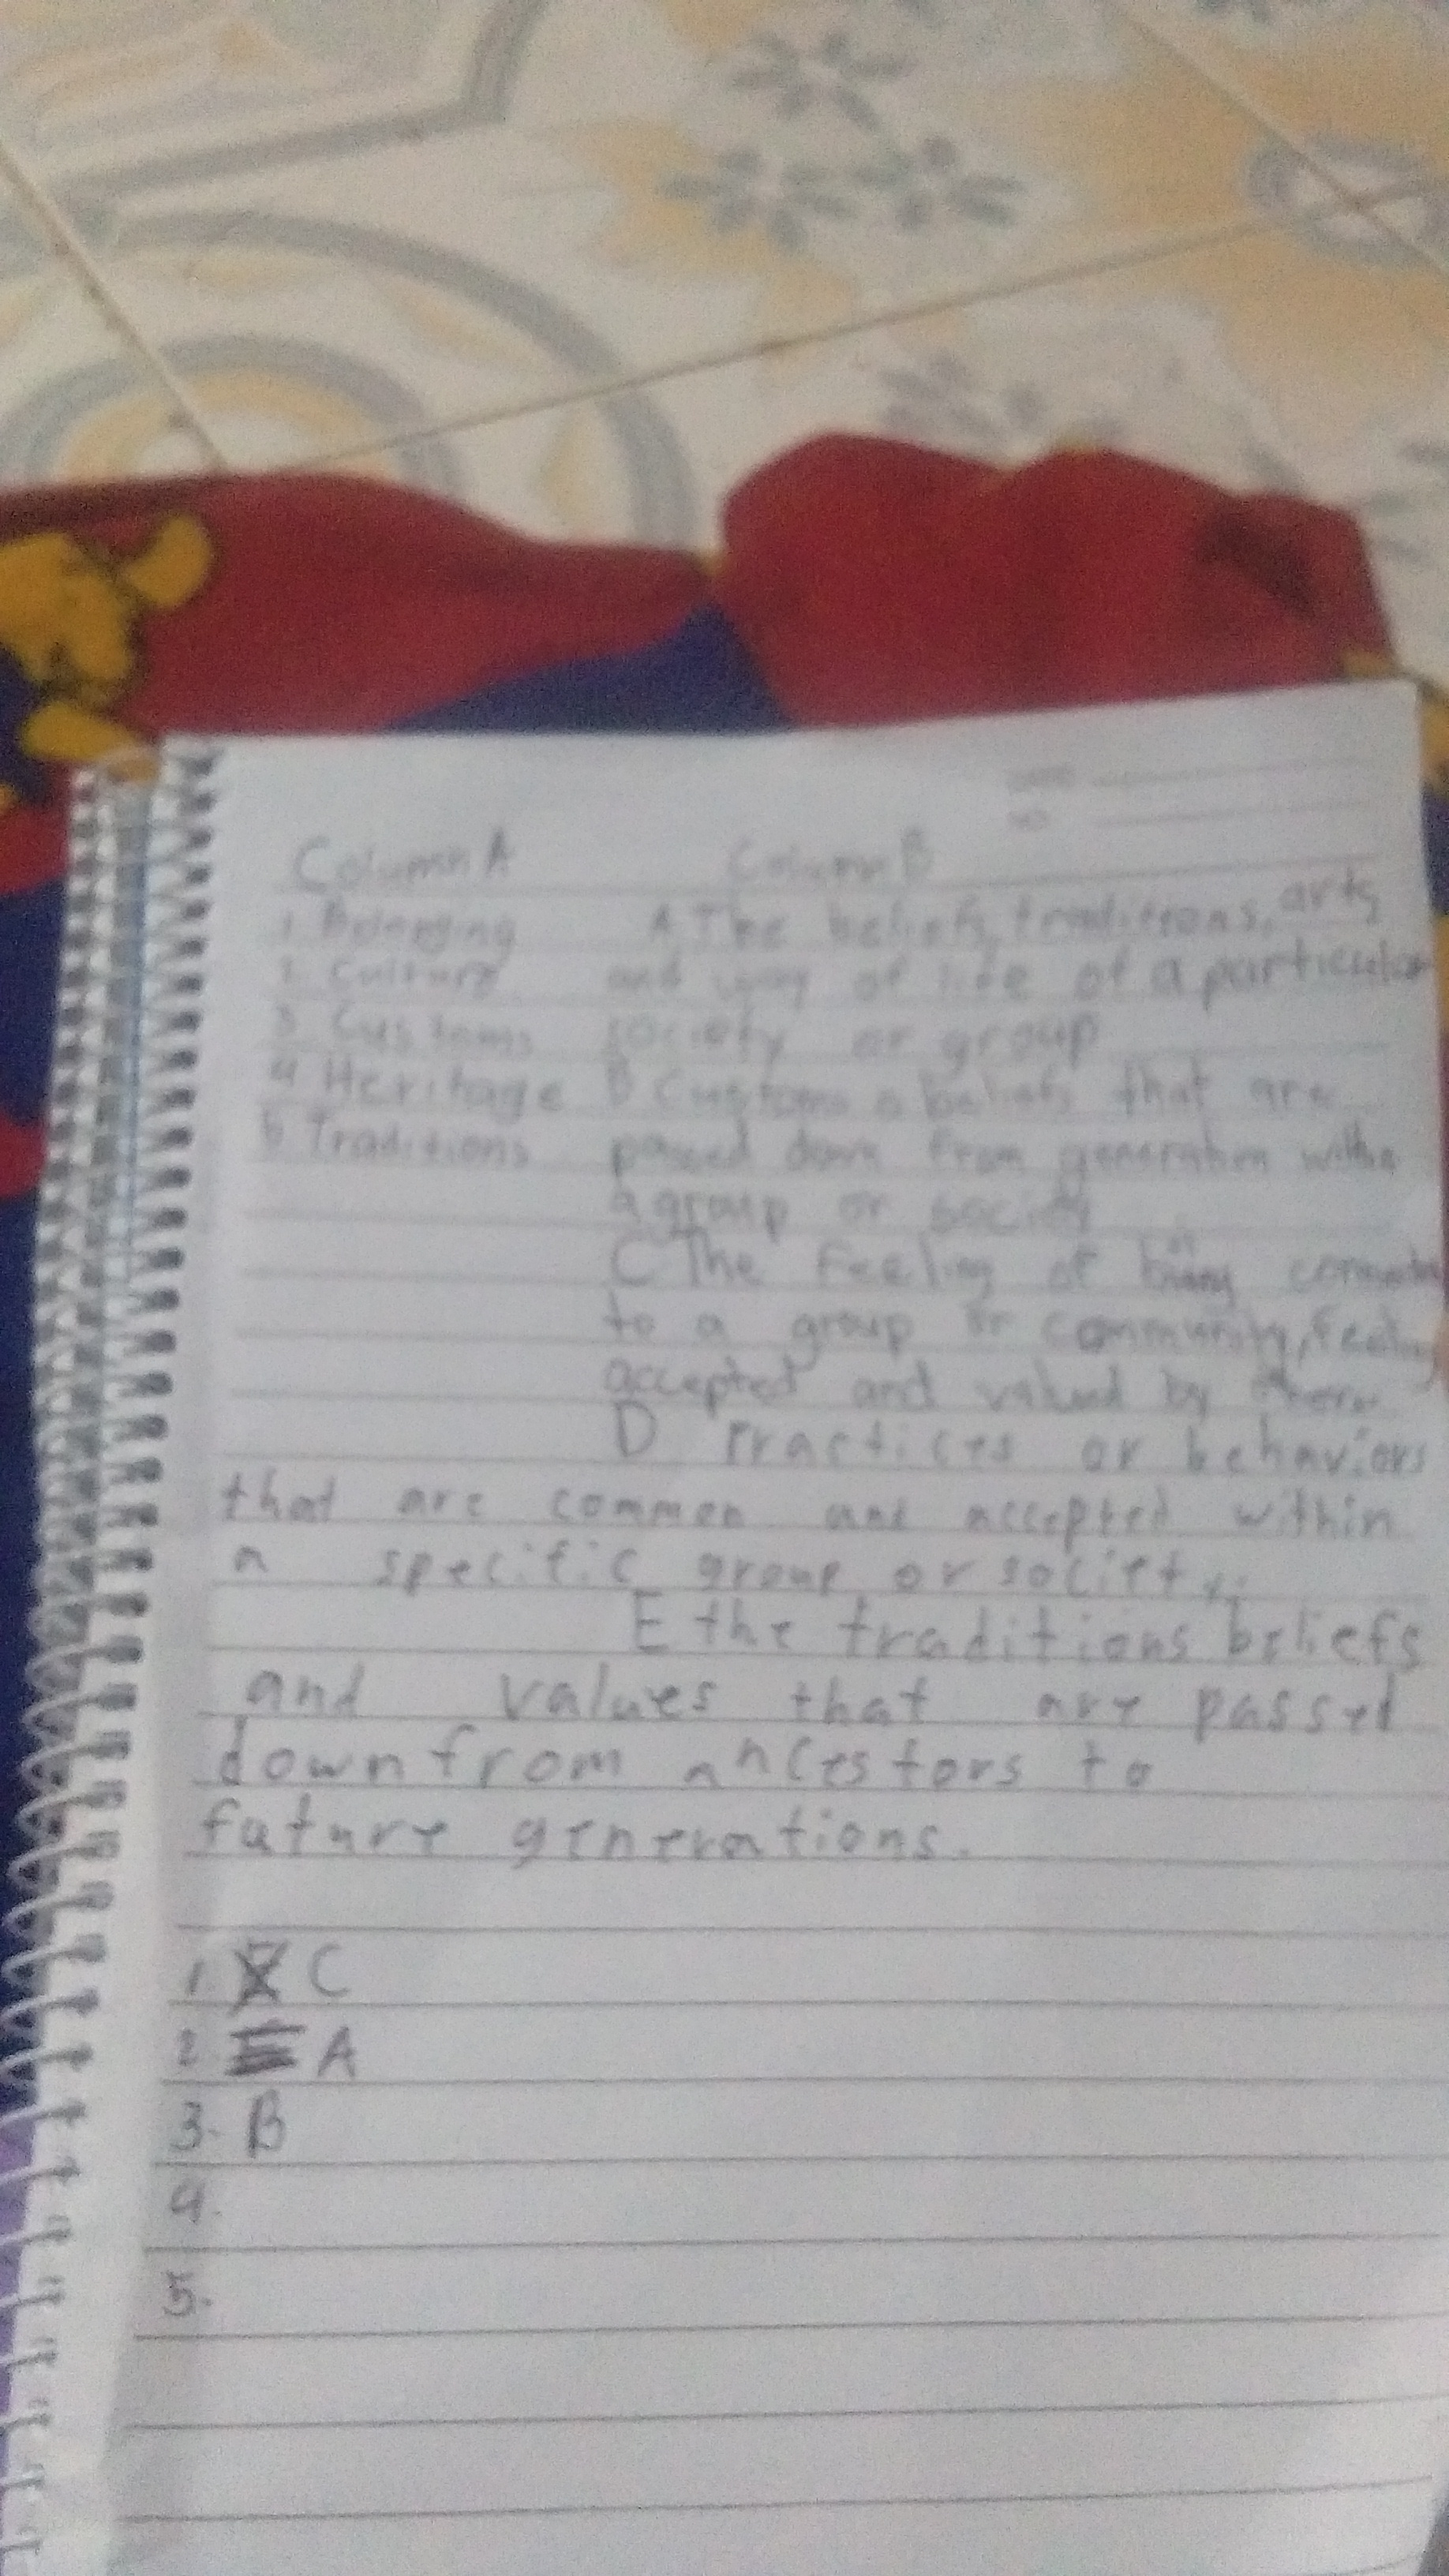 DATE
NO.
Column A Column B
1 Belonging A The beliefs, traditions, arts
2. Culture and way of life of a particular
3 Customs society or group
4 Heritage B Customs o beliefs that are
5 Traditions passed down from generation within
a group or society
C The Feeling of being
to a group or community, feeling
accepted and valued by
D Practices or behaviors
that are common and accepted within
a specific group or society.
E the traditions beliefs
and values that are passed
down from ancestors to
future generations.
1. C
2. A
3. B
4.
5.